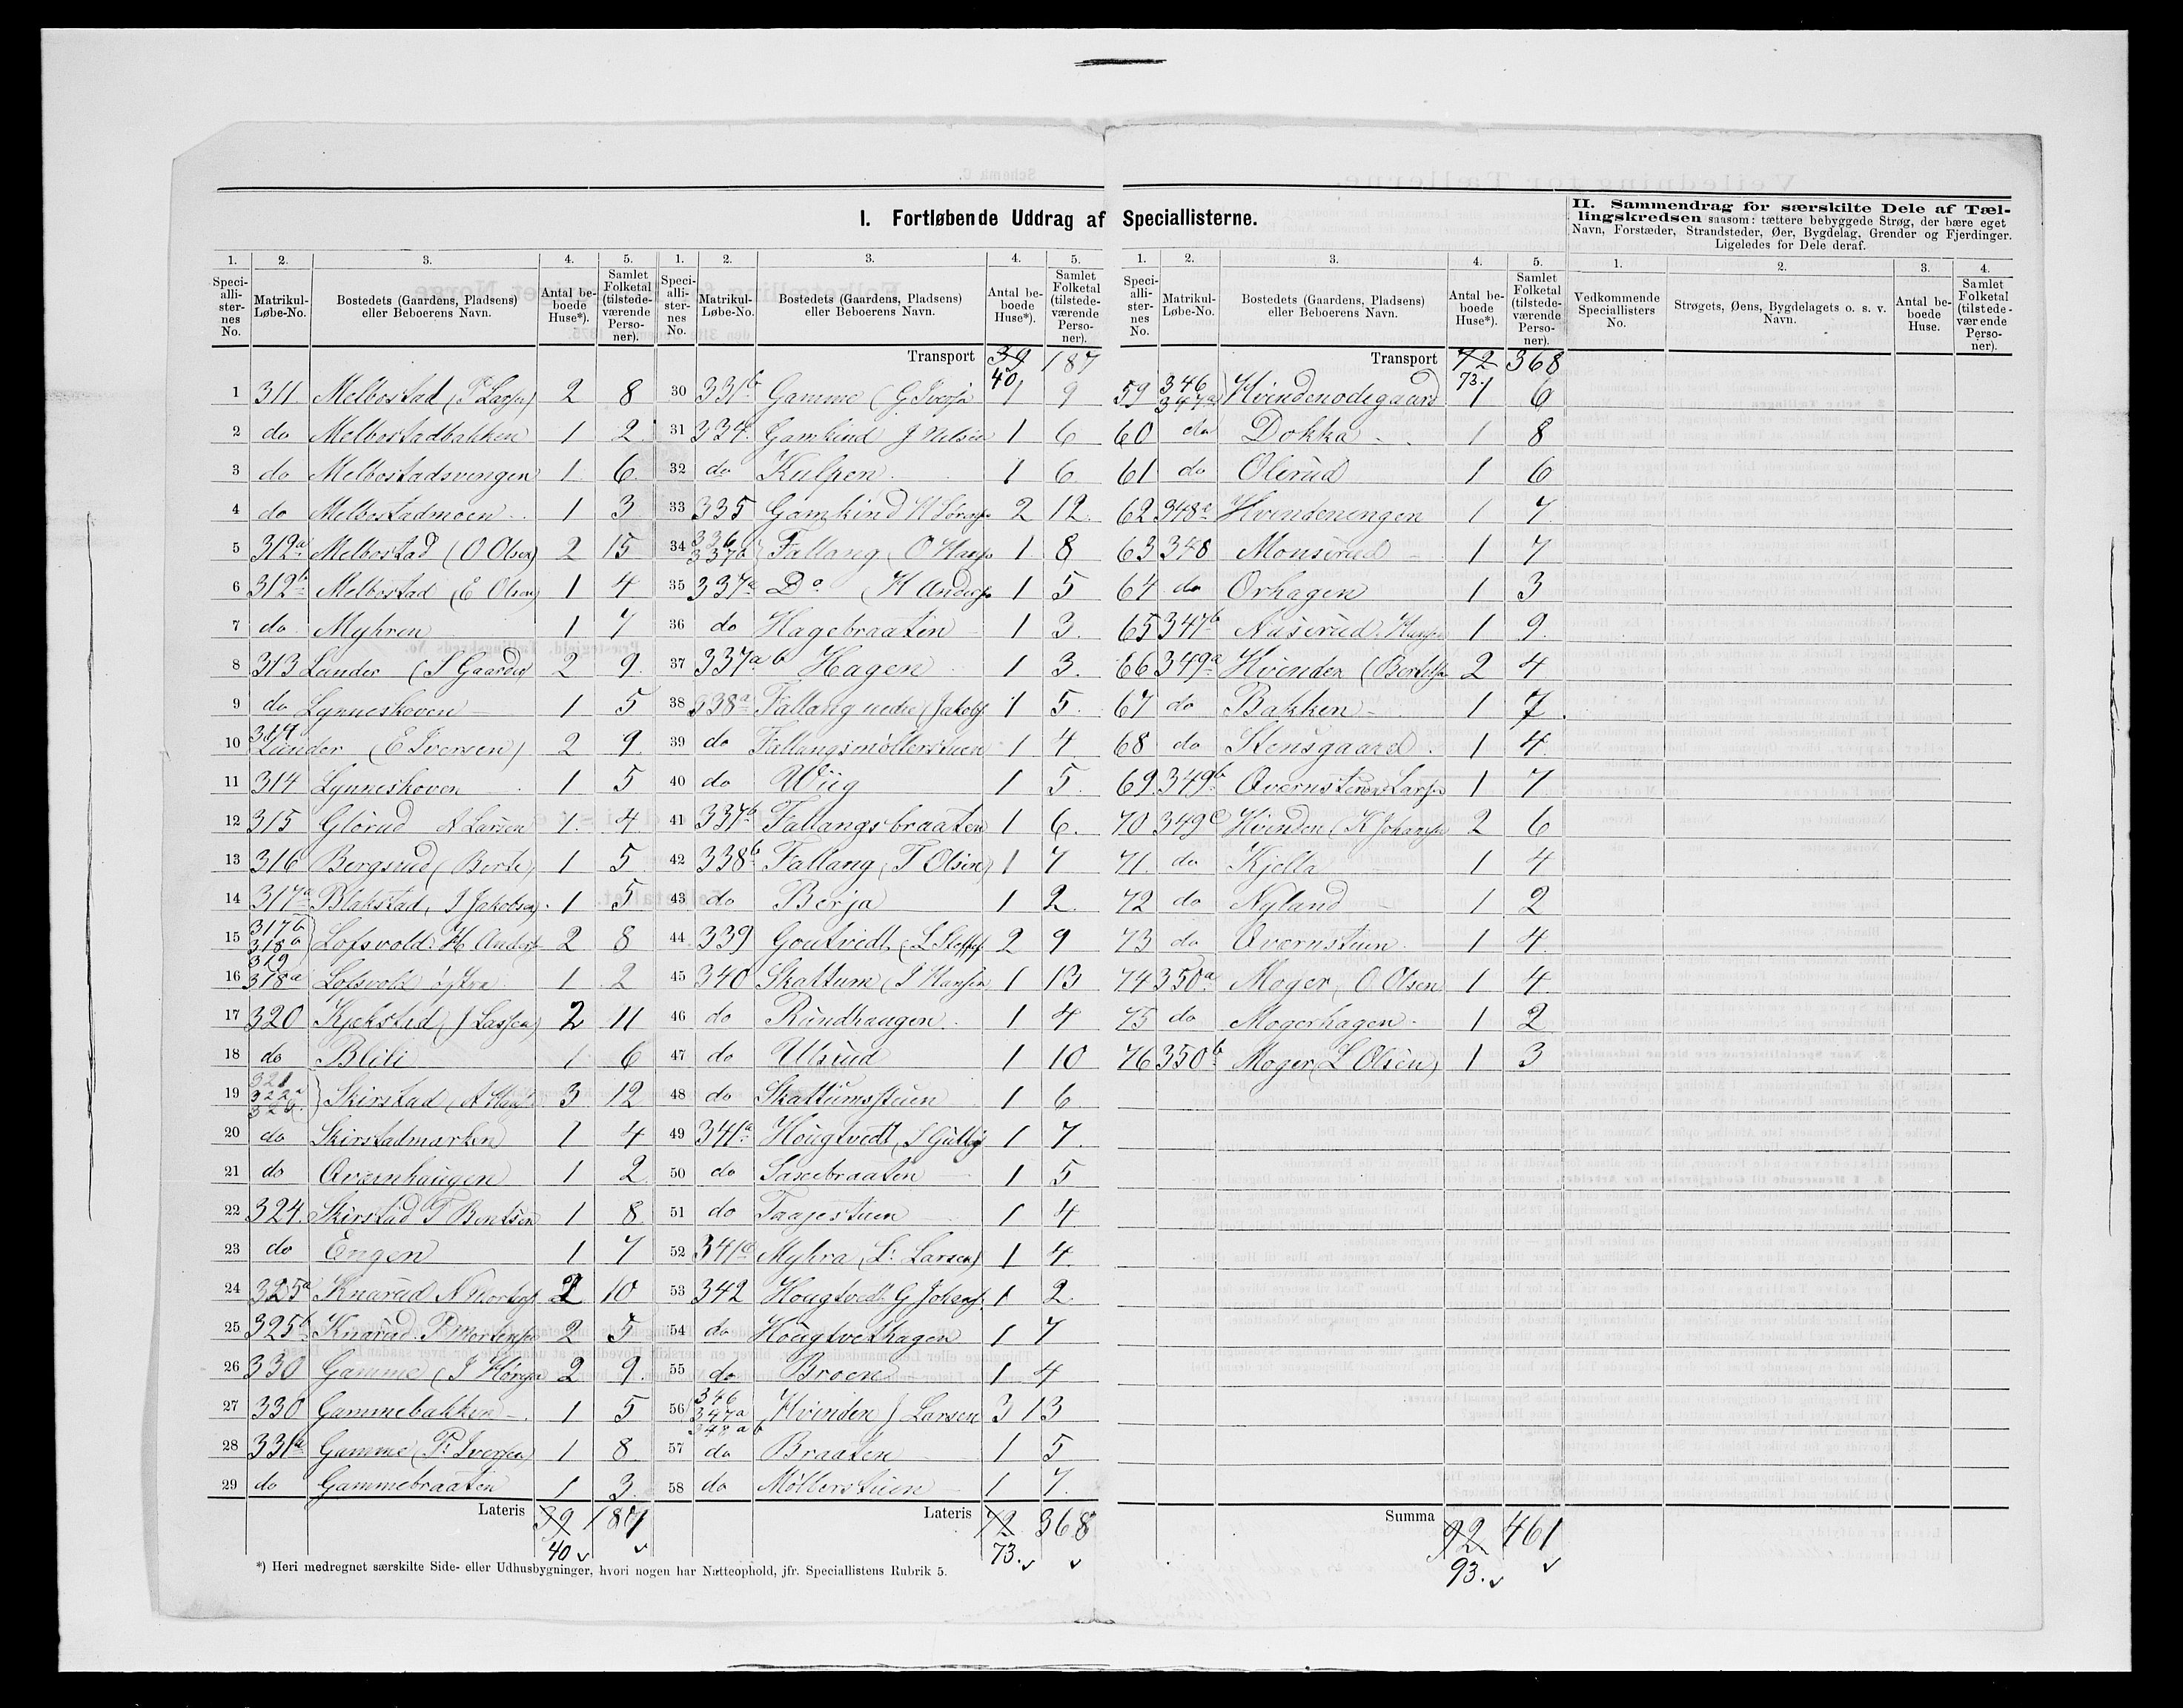 I. Fortløbende Uddrag af Speciallisterne.
II. Sammendrag for særskilte Dele af Tæl-
lingskredsen saasom: tættere bebyggede Strøg, der bære eget
Navn, Forstæder, Strandsteder, Øer, Bygdelag, Grender og Fjerdinger.
Ligeledes for Dele deraf.
1. 2. 3. 4. 5.
Speci-alli-ster-nes No. Matrikul-Løbe-No. Bostedets (Gaardens, Pladsens) eller Beboerens Navn. Antal be-boede Huse*). Samlet Folketal (tilstede-værende Perso-ner).
1 311. Melbostad (P. Larsen) 2 8
2 do Melbostadbakken 1 2
3 do Melbostadsvengen 1 6
4 do Melbostadmoen 1 3
5 312a Melbostad (O Olsen) 2 15
6 312b Melbostad (E Olsen) 1 4
7 do Myhren 1 7
8 313 Lunder (S Gaarder) 2 9
9 do Lynneskoven 1 5
10 Lunder (E Iversen) 2 9
11 314 Lynneskoven 1 5
12 315 Glörud N Larsen 1 4
13 316 Bergsrud (Borte) 1 5
14 317a Blakstad, J Jakobsen 1 5
15 317b 318a Lofsvold. H Anders 2 8
16 319 318a Lofsvold östre 1 2
17 320 Kjekstad J Larsen) 2 11
18 do Blili 1 6
19 321 322a 323. Skirstad (A Hans 3 12
20 do Skirstadmarken 1 4
21 do Qværnhaugen 1 2
22 324. Skirstad T Bentsen 1 8
23 do Engen 1 7
24 325a Knarud N Mortens 2 10
25 325b Knarud P Mortens 2 5
26 330 Gamme (J 2 9
27 330 Gammebakken 1 5
28 331a Gamme (P. Iversen) 1 8
29 do Gammebraaten 1 3
Lateris 39 187
40
1. 2. 3. 4. 5.
Speci-alli-ster-nes No. Matrikul-Løbe-No. Bostedets (Gaardens, Pladsens) eller Beboerens Navn. Antal be-boede Huse*). Samlet Folketal (tilstede-værende Perso-ner).
Transport 39 187
40
30 331b Gamme (G Ivers 1 9
31 334. Gamkind J Nilsen 1 6
32 do Kulpen 1 6
33 335 Gamkind H 2 12
34 336 337b Fallang (O Hans 1 8
35 337a Do (H Anders 1 5
36 do Hagebraaten 1 3.
37 337a b Hagen 1 3.
38 338a Fallang nedre (Jakobs 1 5.
39 do Fallangsmöllerstuen 1 4
40 do Wiig 1 5.
41 337b Fallangsbraaten 1 6.
42 338b Fallang (T Olsen) 1 7
43 do Berja 1 2.
44 339 Goutvedt (L 2 9
45 340 Skattum (J Hansen 1 13
46 do Rundhaugen 1 4
47 do Ulsrud 1 10
48 do Skattumsstuen 1 6
49 341a Hougtvedt, S Gulbr 1 7.
50 do 1 5
51 do Taajestuen 1 4
52 341 Myhra (L. Larsen) 1 4
53 342 Hougtvedt G Johans 1 2
54 do Hougtvethagen 1 7
55 do Broen 1 4
56 346 347a 348 a b Hvinden J Larsen 3 13
57 do Braaten 1 5
58 do Möllerstuen 1 7.
Lateris 72 368
73.
1. 2. 3. 4. 5.
Speci-alli-ster-nes No. Matrikul-Løbe-No. Bostedets (Gaardens, Pladsens) eller Beboerens Navn. Antal be-boede Huse*). Samlet Folketal (tilstede-værende Perso-ner).
Transport 72 368
73.
59 346 347a Hvindenodegaard 1 6
60 do Dokka 1 8
61 do Olerud 1 6
62 348 Hvindenengen 1 7
63 348 Monsrud 1 7
64 do Orhagen 1 3
65 347b Nuserud Hans 1 9.
66 349a Hvinden (Bertels 2 4
67 do Bakken 1 7.
68 do Stensgaard 1 4
69 349b Qvernstuen Lars 1 7
70 349c Hvinden (K Johans 2 6
71. do Kjella 1 4
72 do Nylund 1 2
73 do Qvernstuen 1 4
74 350a Moger, O Olsen 1 4
75 do Mogerhagen 1 2
76 350b Moger L Olsen) 1 3
Summa 92 461
93.
1. 2. 3. 4.
Vedkommende Speciallisters No. Strøgets, Øens, Bygdelagets o. s. v. Navn. Antal beboede Huse. Samlet Folketal (tilstede-værende Perso-ner).
*) Heri medregnet særskilte Side- eller Udhusbygninger, hvori nogen har Natteophold, jfr. Speciallistens Rubrik 5.